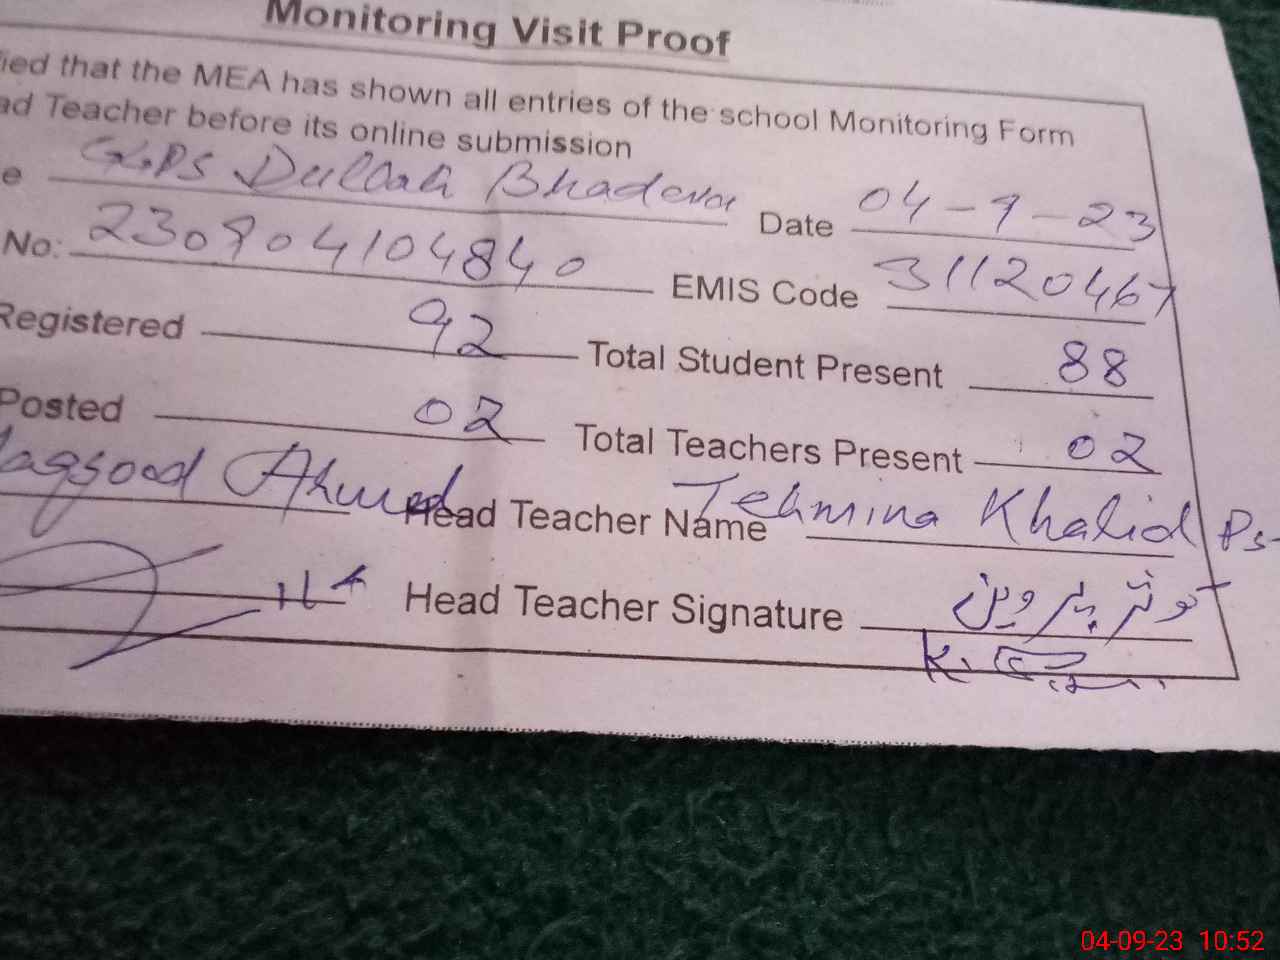 Monitoring Visit Proof
fied that the MEA has shown all entries of the school Monitoring Form
ad Teacher before its online submission
e G.PS Dullah Bhadera Date 04-9-23
No: 230904104840 EMIS Code 31120467
Registered 92 Total Student Present 88
Posted 02 Total Teachers Present 02
aqsood Ahmed Head Teacher Name Tehmina Khalid Ps
Head Teacher Signature کوثر پروین
04-09-23 10:52